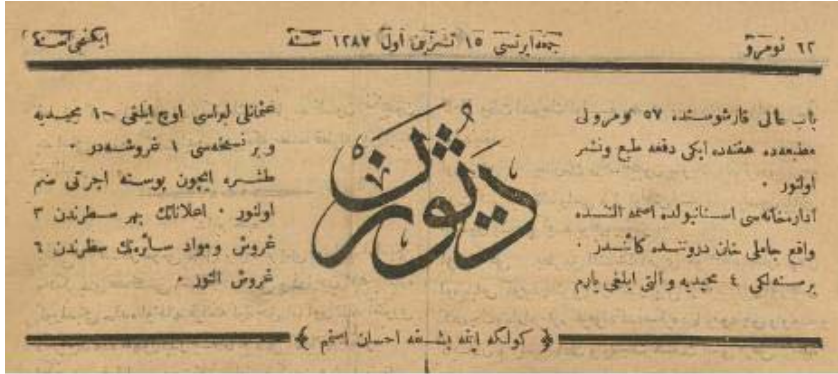 ٦٢ نومرو
جمعه ايرتسى ١٥ تشرين اول ١٢٨٧ سنة
ايكنجى سنة
باب عالى قارشوسنده ٥٧ نومرولى
مطبعه‌ده هفته‌ده ايكى دفعه طبع ونشر
اولنور ٠
اداره‌خانه‌سى استانبولده اصمه التنده
واقع جاملى خان دروننده كائندر ٠
برسنه‌لكى ٤ مجيديه والتى ايلغى يارم
ديوژن
عثمانلى ليراسى اوچ ايلغى ١٠ مجيديه
وبر نسخه‌سى ١ غروشه‌در ٠
طشره ايچون پوسته اجرتى ضم
اولنور ٠ اعلاناتك بهر سطرندن ٣
غروش ومواد سائره‌نك سطرندن ٦
غروش النور ٠
كولكه ايتمه بشقه احسان استمم